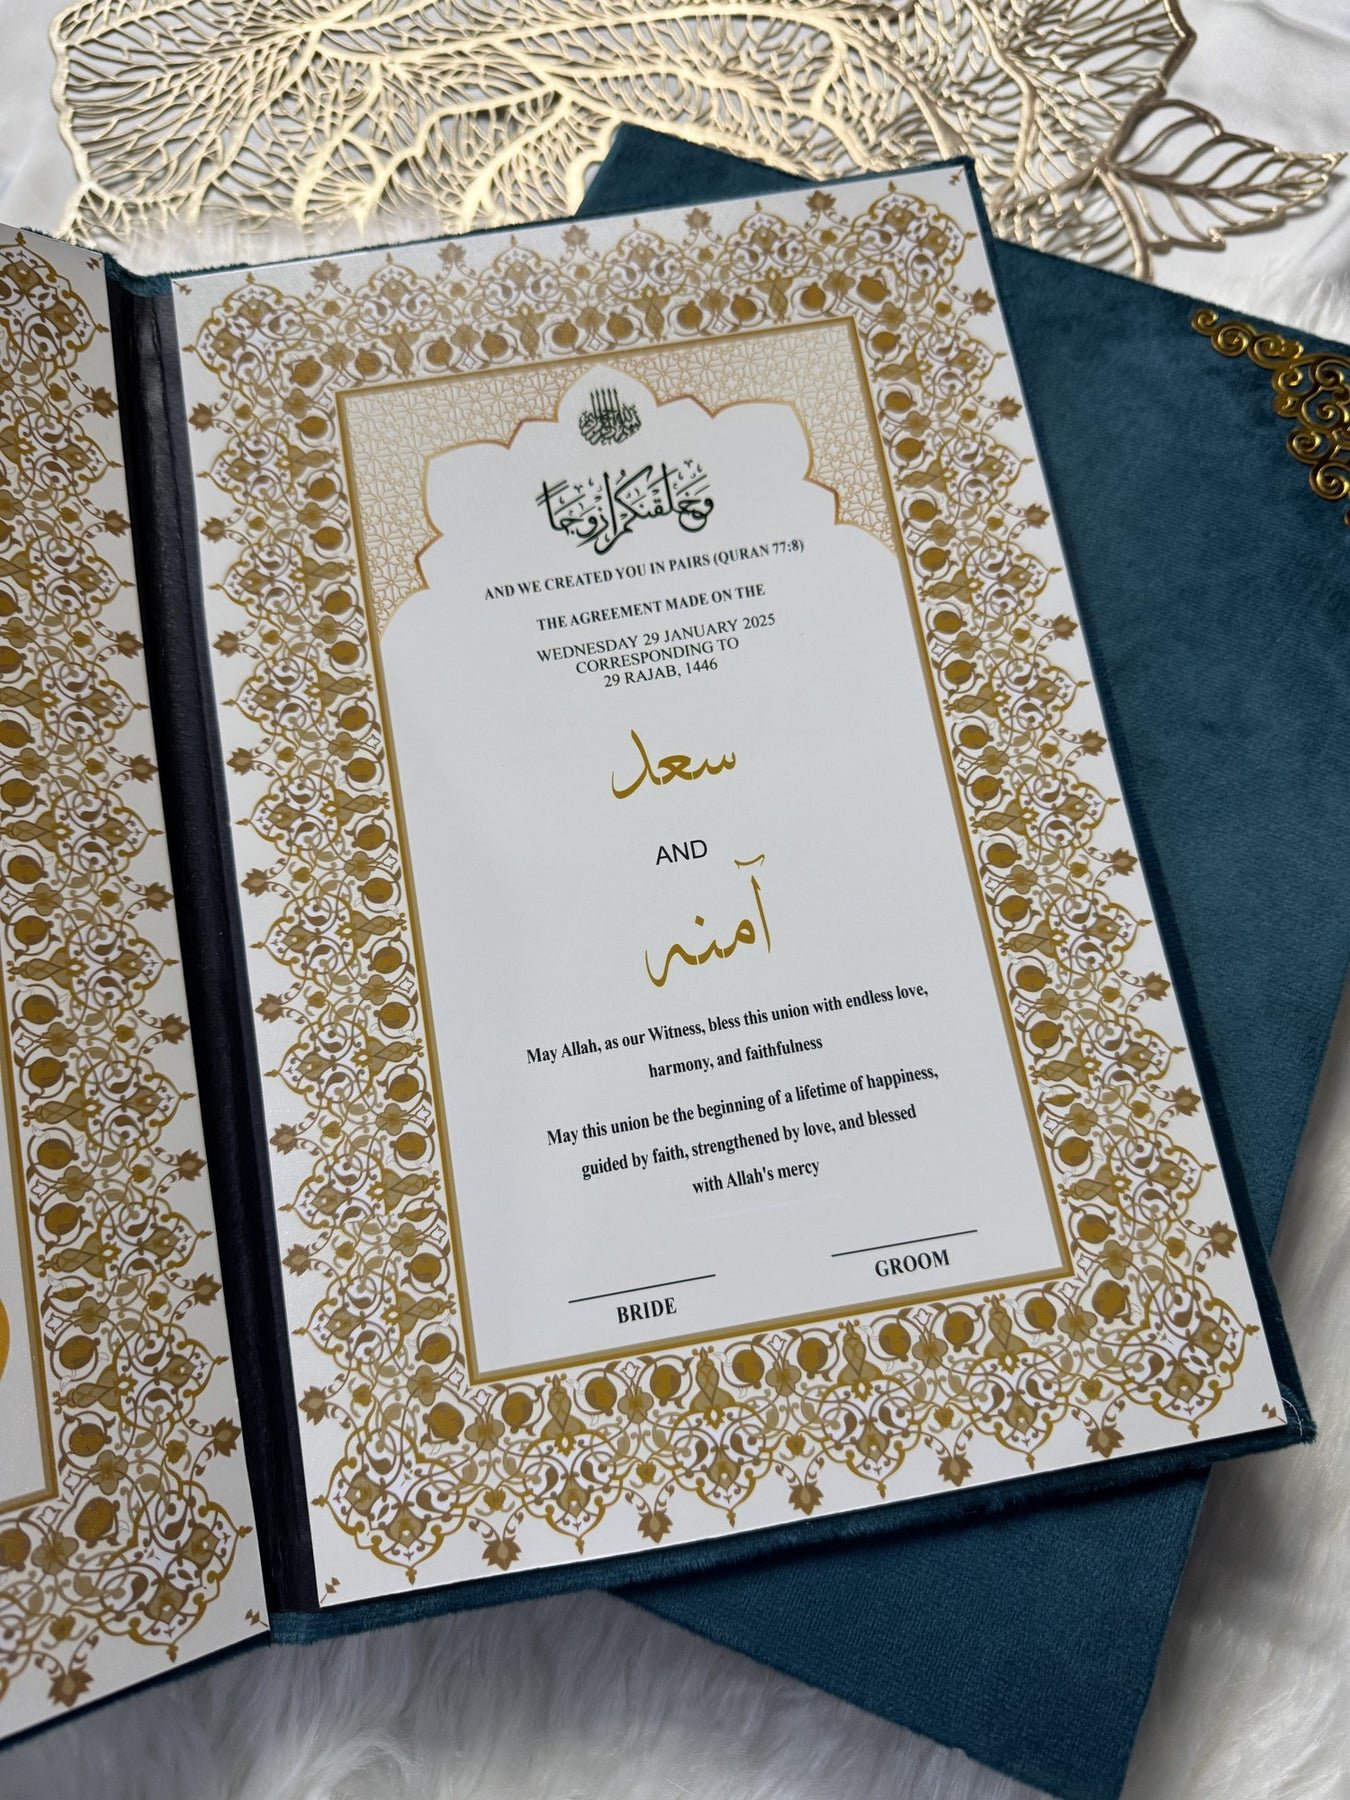 بسم الله الرحمن الرحيم
وَخَلَقْنَٰكُمْ أَزْوَٰجًا
AND WE CREATED YOU IN PAIRS (QURAN 77:8)
THE AGREEMENT MADE ON THE
WEDNESDAY 29 JANUARY 2025
CORRESPONDING TO
29 RAJAB, 1446
سعد
AND
آمنه
May Allah, as our Witness, bless this union with endless love,
harmony, and faithfulness
May this union be the beginning of a lifetime of happiness,
guided by faith, strengthened by love, and blessed
with Allah's mercy
BRIDE
GROOM